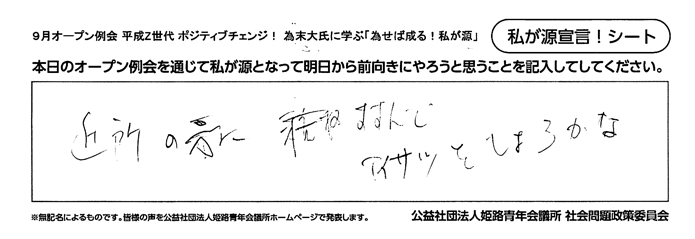 9月オープン例会 平成Z世代 ポジティブチェンジ! 為末大氏に学ぶ「為せば成る!私が源」
私が源宣言!シート
本日のオープン例会を通じて私が源となって明日から前向きにやろうと思うことを記入してしてください。
近所の
すすんで
アイサツをしようかな
※無記名によるものです。皆様の声を公益社団法人姫路青年会議所ホームページで発表します。
公益社団法人姫路青年会議所 社会問題政策委員会